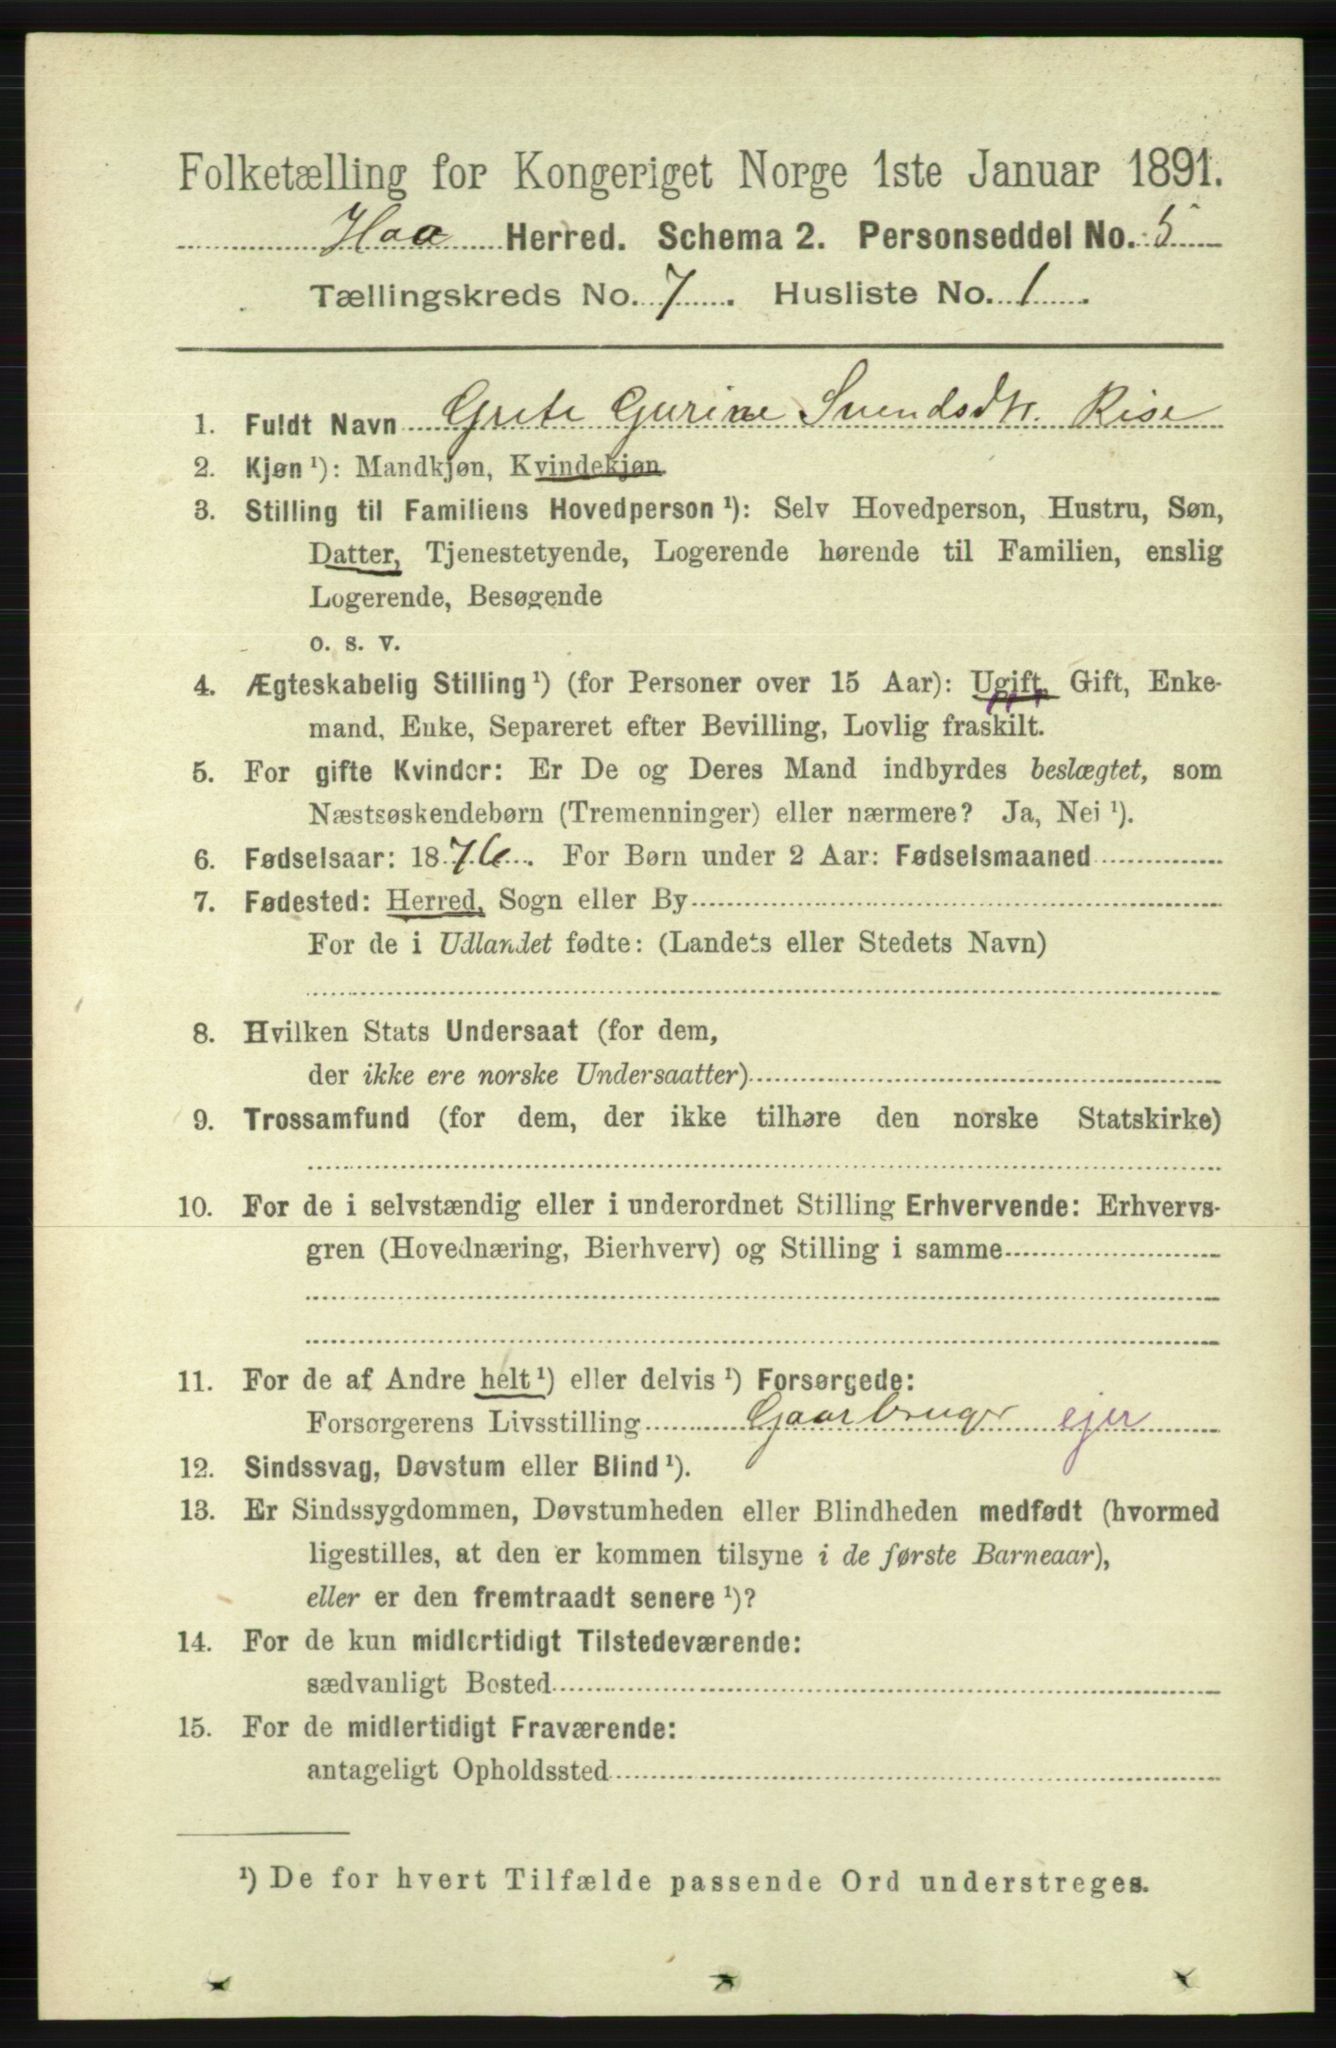 Folketælling for Kongeriget Norge 1ste Januar 1891.
Haa Herred. Schema 2. Personseddel No. 5
Tællingskreds No. 7. Husliste No. 1.
1. Fuldt Navn Grete Gurine Svendsdtr. Rise
2. Kjøn ¹): Mandkjøn, Kvindekjøn
3. Stilling til Familiens Hovedperson ¹): Selv Hovedperson, Hustru, Søn,
Datter, Tjenestetyende, Logerende hørende til Familien, enslig
Logerende, Besøgende
o. s. v.
4. Ægteskabelig Stilling ¹) (for Personer over 15 Aar): Ugift, Gift, Enke-
mand, Enke, Separeret efter Bevilling, Lovlig fraskilt.
5. For gifte Kvinder: Er De og Deres Mand indbyrdes beslægtet, som
Næstsøskendebørn (Tremenninger) eller nærmere? Ja, Nei ¹).
6. Fødselsaar: 1876. For Børn under 2 Aar: Fødselsmaaned
7. Fødested: Herred, Sogn eller By
For de i Udlandet fødte: (Landets eller Stedets Navn)
8. Hvilken Stats Undersaat (for dem,
der ikke ere norske Undersaatter)
9. Trossamfund (for dem, der ikke tilhøre den norske Statskirke)
10. For de i selvstændig eller i underordnet Stilling Erhvervende: Erhvervs-
gren (Hovednæring, Bierhverv) og Stilling i samme
11. For de af Andre helt ¹) eller delvis ¹) Forsørgede:
Forsørgerens Livsstilling Gaarbruger ejer
12. Sindssvag, Døvstum eller Blind ¹).
13. Er Sindssygdommen, Døvstumheden eller Blindheden medfødt (hvormed
ligestilles, at den er kommen tilsyne i de første Barneaar),
eller er den fremtraadt senere ¹)?
14. For de kun midlertidigt Tilstedeværende:
sædvanligt Bosted
15. For de midlertidigt Fraværende:
antageligt Opholdssted
¹) De for hvert Tilfælde passende Ord understreges.